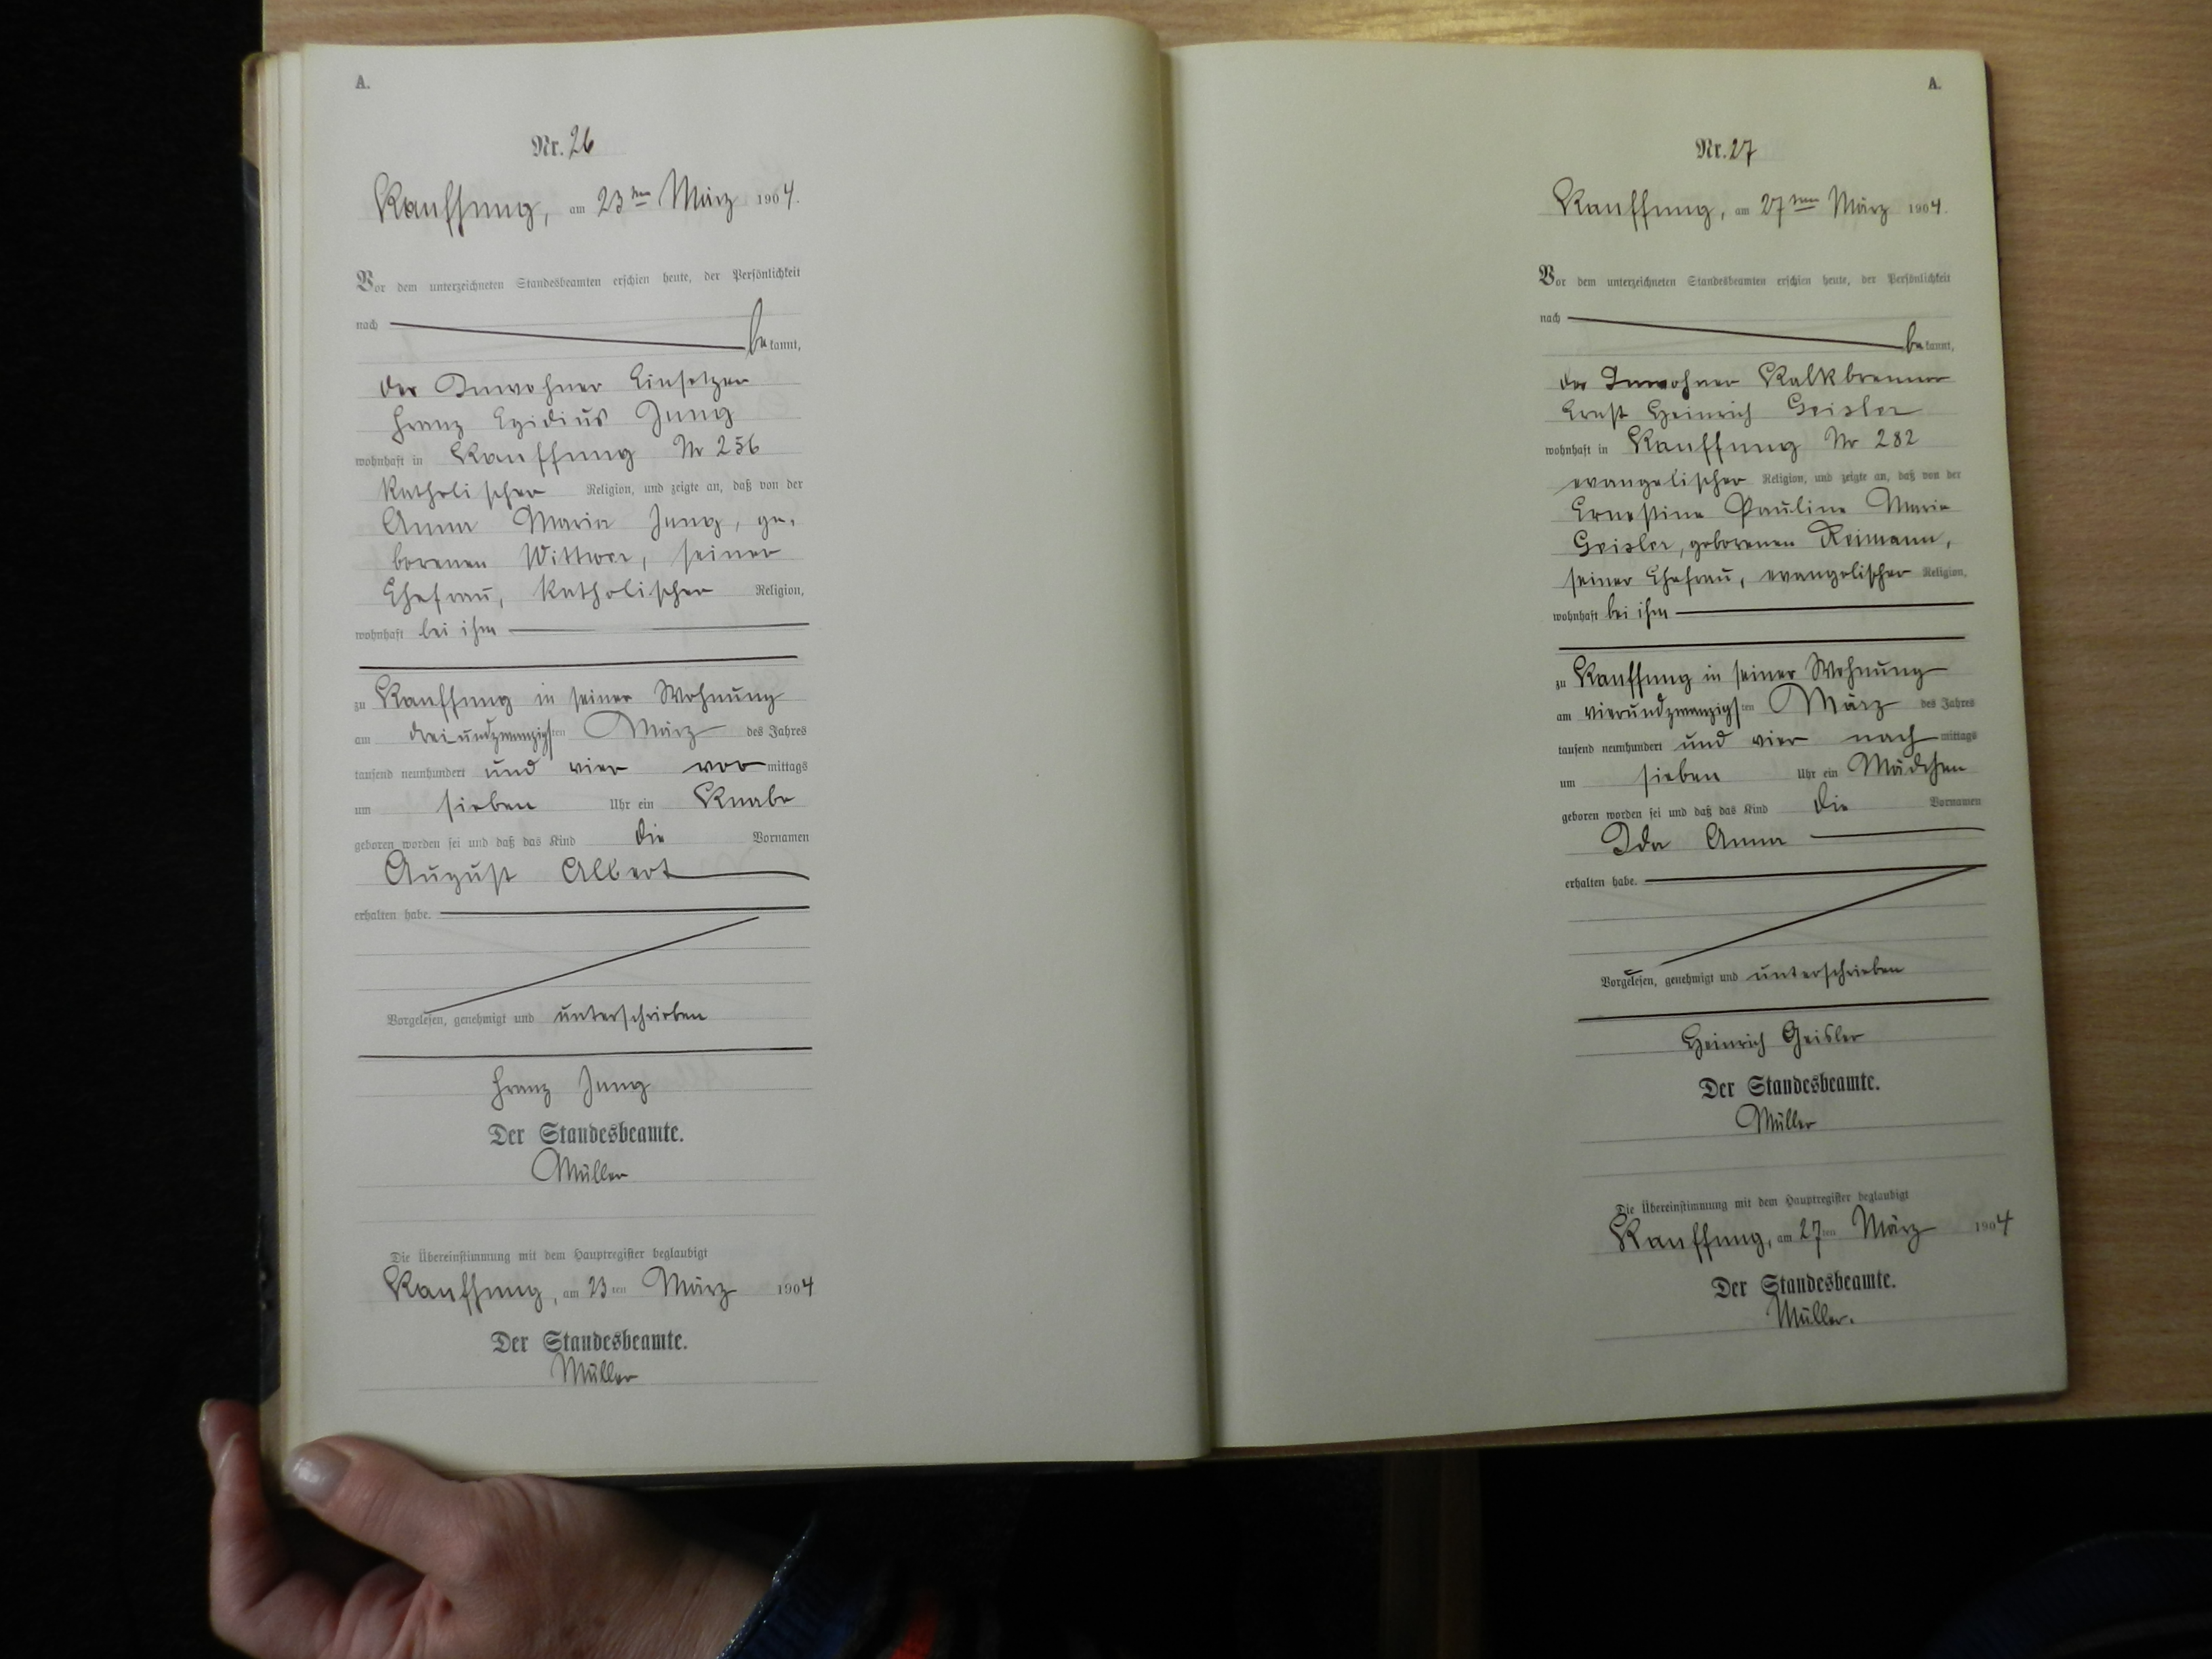 A.
Nr. 26
Kauffung, am 23ten März 1904.
Vor dem unterzeichneten Standesbeamten erschien heute, der Persönlichkeit
nach
bekannt,
der Inwohner Einsetzer
Franz Egidius Jung
wohnhaft in Kauffung Nr 256
katholischer Religion, und zeigte an, daß von der
Anna Maria Jung, ge-
borenen Wittwer, seiner
Ehefrau, katholischer Religion,
wohnhaft bei ihm
zu Kauffung in seiner Wohnung
am dreiundzwanzigsten März des Jahres
tausend neunhundert und vier vormittags
um sieben Uhr ein Knabe
geboren worden sei und daß das Kind die Vornamen
August Albert
erhalten habe.
Vorgelesen, genehmigt und unterschrieben
Franz Jung
Der Standesbeamte.
Müller
Die Übereinstimmung mit dem Hauptregister beglaubigt
Kauffung, am 23ten März 1904
Der Standesbeamte.
Müller
A.
Nr. 27
Kauffung, am 27ten März 1904.
Vor dem unterzeichneten Standesbeamten erschien heute, der Persönlichkeit
nach
bekannt,
der Inwohner Kalkbrenner
Ernst Heinrich Geisler
wohnhaft in Kauffung Nr 282
evangelischer Religion, und zeigte an, daß von der
Ernestine Pauline Marie
Geisler, geborenen Reimann,
seiner Ehefrau, evangelischer Religion,
wohnhaft bei ihm
zu Kauffung in seiner Wohnung
am vierundzwanzigsten März des Jahres
tausend neunhundert und vier nachmittags
um sieben Uhr ein Mädchen
geboren worden sei und daß das Kind die Vornamen
Ida Anna
erhalten habe.
Vorgelesen, genehmigt und unterschrieben
Heinrich Geisler
Der Standesbeamte.
Müller
Die Übereinstimmung mit dem Hauptregister beglaubigt
Kauffung, am 27ten März 1904
Der Standesbeamte.
Müller.